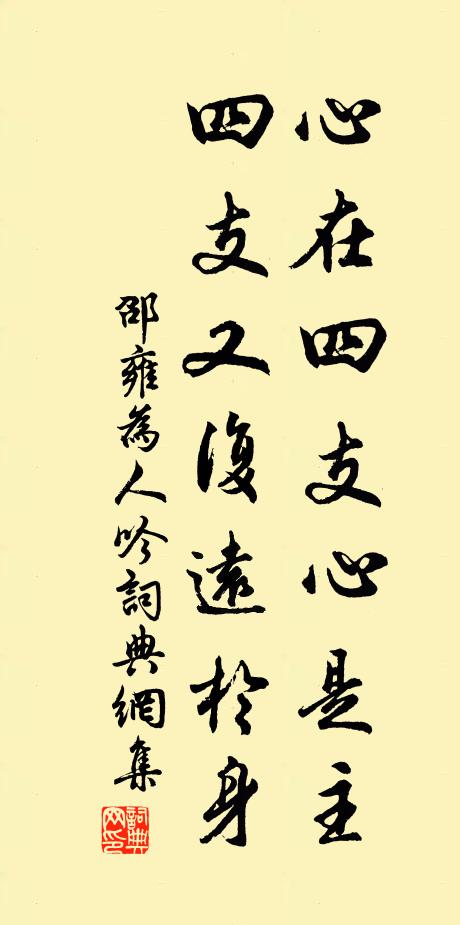 心在四支心是主
四支又復遠於身
邵雍為人吟詞典網集
詞典網印